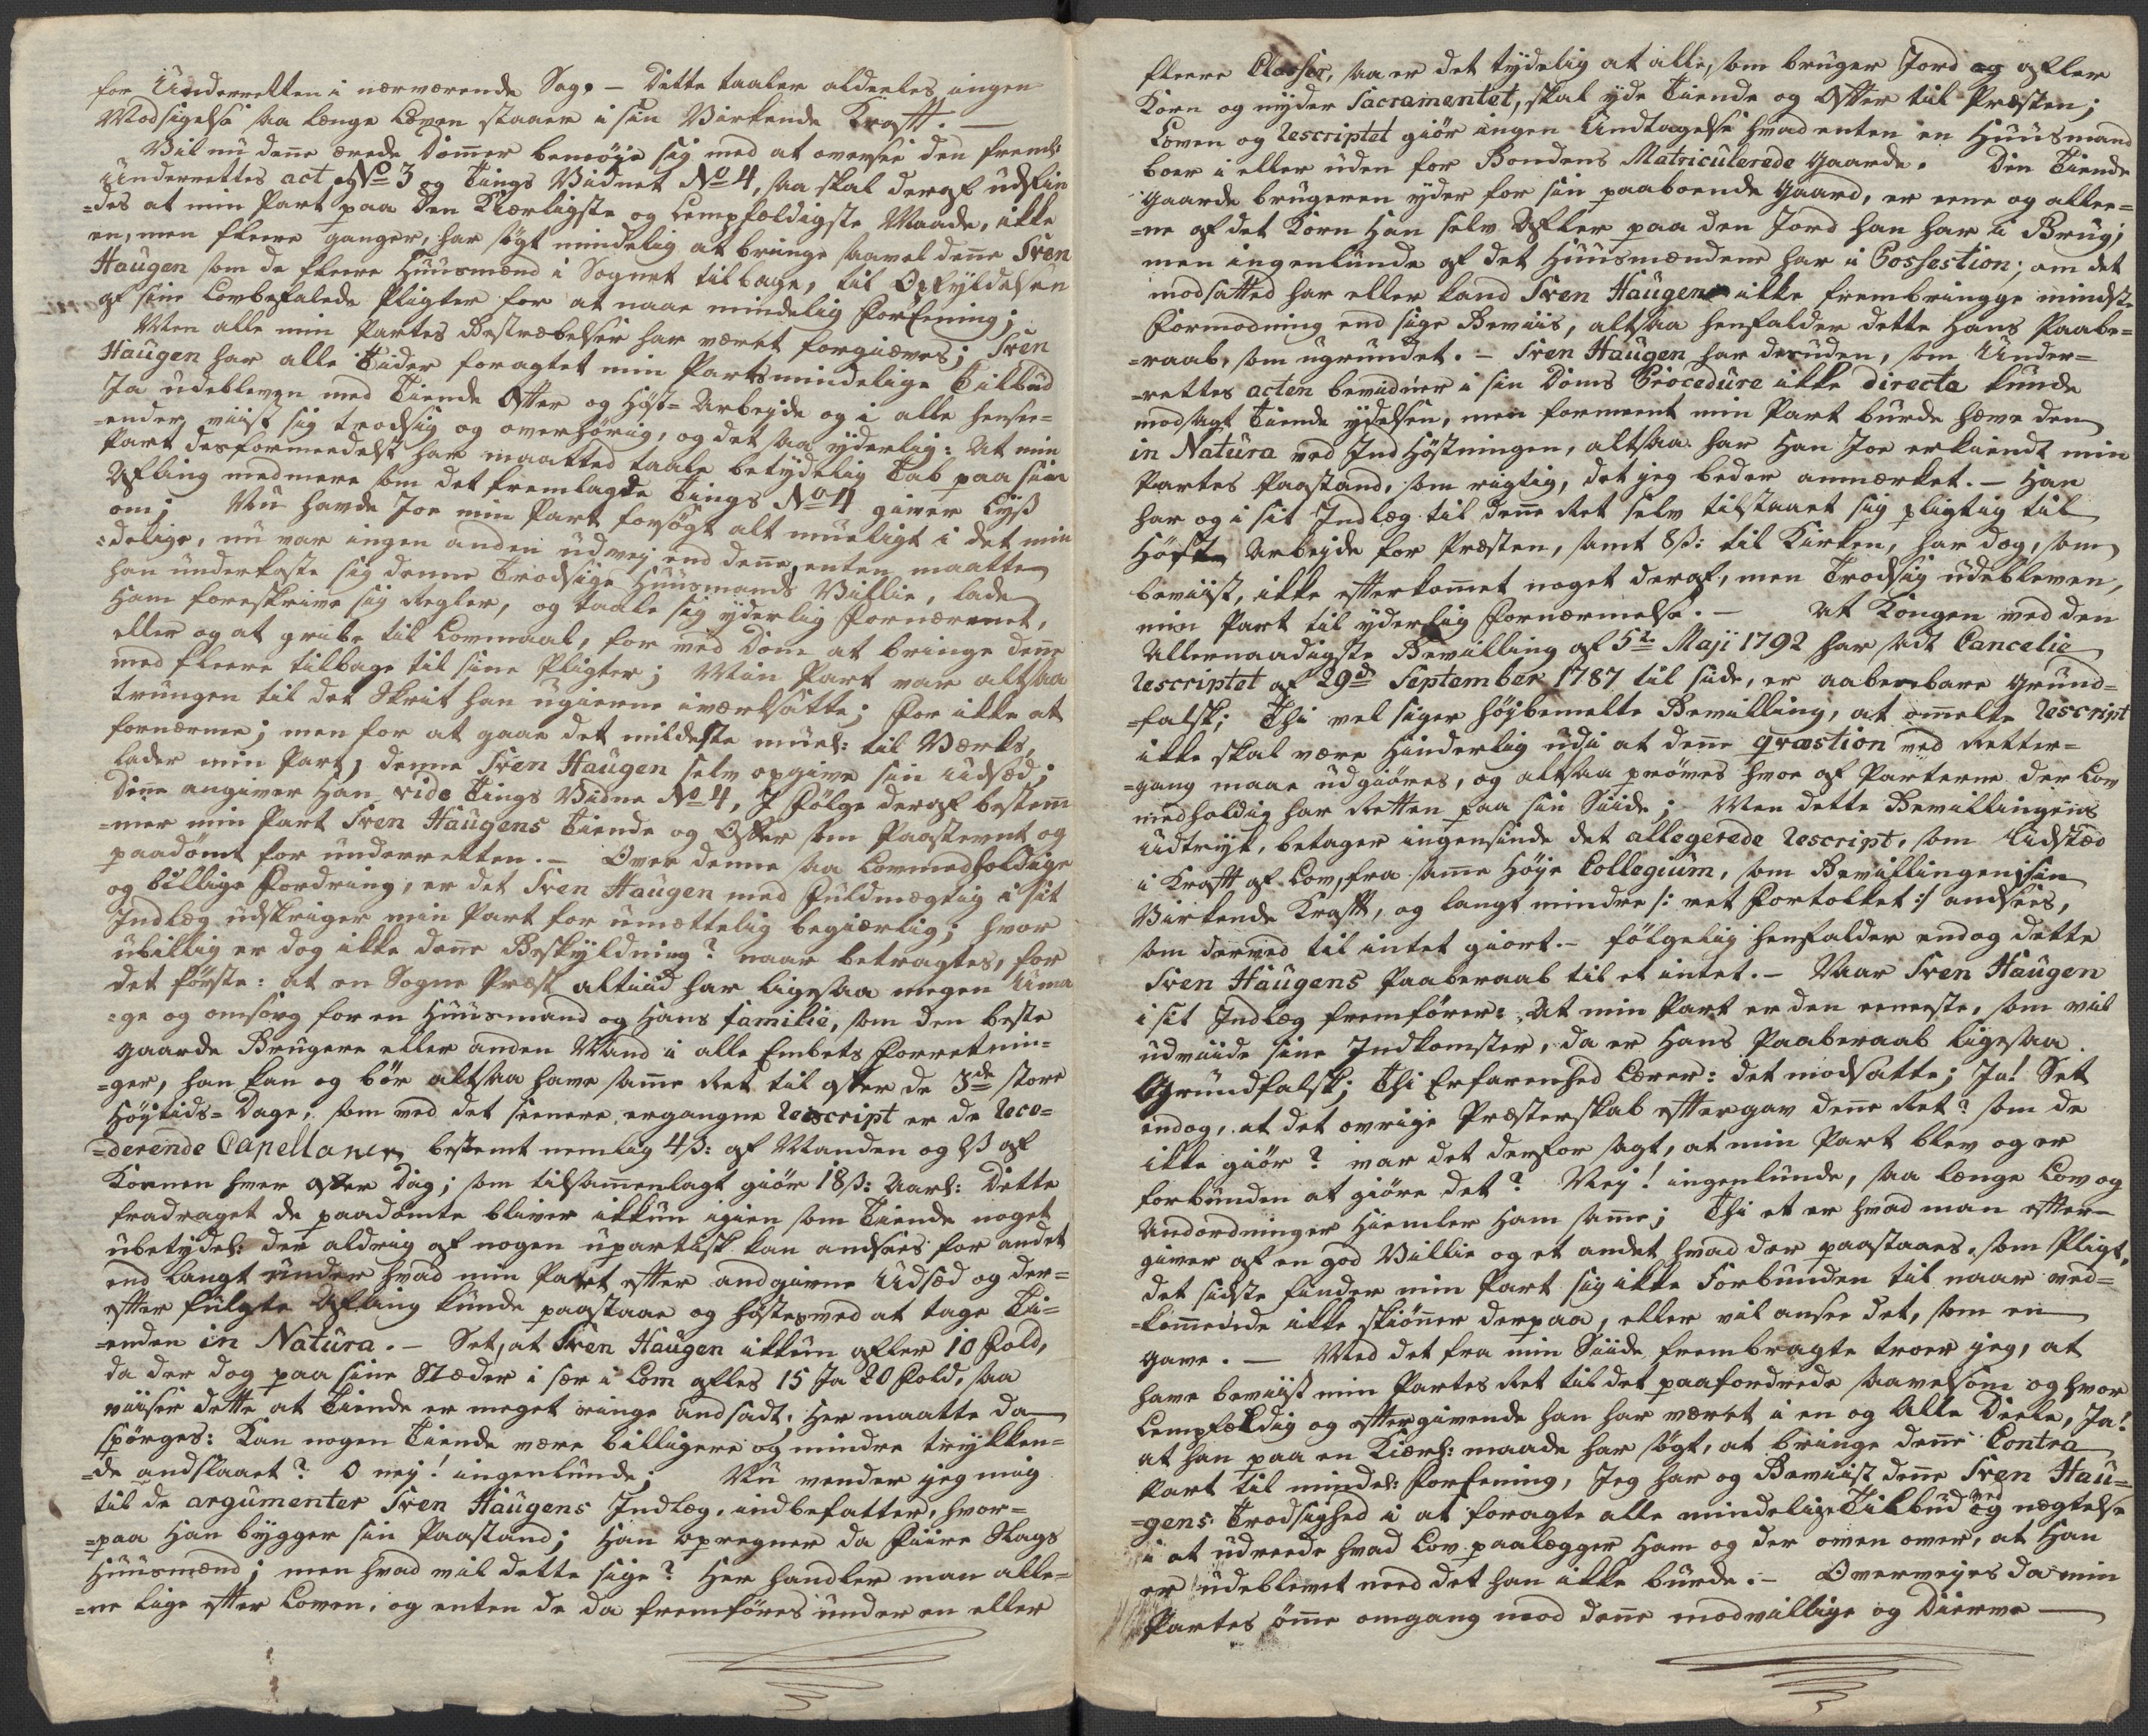 for Underretten i nærværende Sag. – Dette taaler aldeeles ingen
Modsigelse saa længe Loven staaer i sin Virkende Krafft. —
Vil nu deñe ærede Domer bemöye sig med at oversee den freml:
Underrettes act og No 3 og Tings Vidnet No 4, saa skal deraf udfin
=des at min Part paa den Kierligste og Lempfældigste Maade, ikke
en, men fleere ganger, har sögt mindelig at bringe saavel deñe Sven
Haugen som de fleere Huusmænd i Sognet tilbage, til Opfyldelsen
af sine Lovbefalede Pligter for at naae mindelig Foreening;
Men alle min Partes Bestræbelser har været forgiæves; Sven
Haugen har alle Tider foragtet min Parts mindelige Tilbud
Ja udebleven med Tiende Offer og Höst=Arbeyde og i alle hensee=
=ender viist sig trodsig og overhörig, og det saa yderlig: At min
Part desformeedelst har maatted taale betydelig Tab paa sin
Afling medmere som det fremlagde Tings No 4 giver Lyß
om; Nu havde Joe min Part forsögt alt mueligt i det min
=delige, nu var ingen anden udvej end deñe, enten maatte
han underkaste sig denne Trodsige Huusmands Villie, lade
Ham foreskrive sig Regler, og taale sig yderlig Fornærmet,
eller og at gribe til Lovmaal, for ved Dom at bringe deñe
med fleere tilbage til sine Pligter; Min Part var altsaa
trungen til det Skrit han ugierne iværksatte; For ikke at
fornærme; men for at gaae det mildeste muel: til Værks,
lader min Part, denne Sven Haugen selv opgive sin Udsæd;
Deñe angiver Han vide Tings Vidne No 4, I Fölge deraf bestem
=mer min Part Sven Haugens Tiende og Offer som Paastevnt og
paadömt for underretten. – Over denne saa Lovmedholdige
og billige Fordring, er det Sven Haugen med Fuldmægtig i sit
Indlæg udskriger min Part for umættelig begiærlig; hvor
ubillig er dog ikke deñe Beskyldning? naar betragtes, for
det förste: at en Sogne Præst altiid har ligesaa megen Uma
=ge og omsorg for en Huusmand og Hans familie, som den beste
Gaarde Bruger eller anden Mand i alle Embets Forretnin=
=ger, han kan og bör altsaa have same Ret til offer de 3de store
Höytids=Dage, som ved det seenere ergangne Rescript er de Reco=
=derende Capellaner, bestemt nemlig 4ß: af Manden og 2ß af
Konnen hver offer Dag; som tilsamenlagt giör 18ß: Aarl: Dette
fradraget de paadömte bliver ikkun igien som Tiende noget
ubetydel: der aldrig af nogen upartisk kan andsees for andet
end langt under hvad min Part effter andgivne Udsæd og der=
effter fulgte Afling kunde paastaae og höstes ved at tage Ti=
=enden in Natura. – Set, at Sven Haugen ikkun afler 10 Fold,
da der dog paa sine Stæder i sær i Lom afles 15 Ja 20 Fold, saa
viiser dette at Tiende er meget ringe andsadt; Her maatte da
spörges: Kan nogen Tiende være billigere og mindre trykken=
=de andslaaet? O nej! ingenlunde; Nu vender jeg mig
til de argumenter Sven Haugens Indlæg, indbefatter, hvor=
=paa Han bygger sin Paastand; Han opregner da Fiire Slags
Huusmænd; men hvad vil dette sige? Her handler man alle=
=ne lige effter Loven, og enten de da fremföres under en eller
fleere Classer, saa er det tydelig at alle, som bruger Jord og afler
Korn og nyder Sacramentet, skal yde Tiende og Offer til Præsten;
Loven og Rescriptet giör ingen Undtagelse hvad enten en Huusmand
boer i eller uden for Bondens Matriculerede Gaarde. Den Tiende
Gaarde brugeren yder for sin paaboende Gaard, er eene og allee=
=ne af det Korn Han selv Afler paa den Jord han har i Brug;
men ingenlunde af det Huusmændene har i Possestion; om det
modsatted har eller kand Sven Haugen ikke frembringge mindste
Formodning end sige Beviis, altsaa henfalder dette Hans Paabe=
=raab, som ugrundet. – Sven Haugen har desuden, som Under=
=rettes acten bevidner i sin Doms Procedure ikke directe kunde
modsagt Tiende ydelsen, men forment min Part burde have den
in Natura ved Ind Höstningen, altsaa har Han Joe erkiendt min
Partes Paastand, som rigtig, det jeg beder anmærket. – Han
har og i sit Indlæg til deñe Ret selv tilstaaet sig pligtig til
Höst Arbejde for Præsten, samt 8ß: til Kirken, har dog, som
beviist, ikke effterkomet noget deraf, men Trodsig udebleven,
min Part til yderlig Fornærmelse. – At Kongen ved den
Allernaadigste Bevilling af 5te Maji 1792 har sadt Cancelie
Rescriptet af 29de September 1787 til side, er aabenbare Grund=
=falsk; Thi vel siger höjbemelte Bevilling, at omelte Rescript
ikke skal være Hinderlig udi at deñe qvæstion ved Retter=
=gang maae udgiöres, og altsaa pröves hvoe af Parterne der Lov
medholdig har Retten paa sin Siide; Men dette Bevillingens
Udtryk, betager ingensinde det allegerede Rescript, som Udstæd
i Krafft af Lov, fra same Höye Collegium, som Bevillingen, sin
Virkende Krafft, og langt mindre /: ret Fortolket :/ andsees,
som derved til intet giort. – fölgelig henfalder endog dette
Sven Haugens Paaberaab til et intet. – Naar Sven Haugen
i sit Indlæg fremförer: At min Part er den eeneste, som vil
udviide sine Indkomster, da er Hans Paaberaab ligesaa
Grundfalsk; Thi Erfarenhed Lærer: det modsatte; Ja! Set
endog, at det övrige Præsterskab efftergav deñe Ret? som de
ikke giör? var det derfor sagt, at min Part blev og er
forbunden at giöre det? Nej! ingenlunde, saa længe Lov og
Andordninger Hiemler Ham same; Thi et er hvad man effter=
giver af en god Villie og et andet hvad der paastaaes som Pligt,
det sidste finder min Part sig ikke Forbunden til naar ved=
=komende ikke skiöner derpaa, eller vil ansee det, som en
Gave. — Med det fra min Siide frembragte troer jeg, at
have beviist min Partes Ret til det paafordrede saavelsom og hvor
Lempfældig og efftergivende han har været i en og Alle Deele, Ja!
at han paa en Kierl: maade har sögt, at bringe deñe Contra
Part til mindel: foreening, Jeg har og Beviist deñe Sven Hau=
=gens Trodsighed i at foragte alle mindelige Tilbud og ved nægtelse
i at udreede hvad Lov paalægger Ham og der oven over, at Han
er udeblevet med det han ikke burde. – Overvejes da min
Partes öme omgang mod deñe modvillige og Dierve —